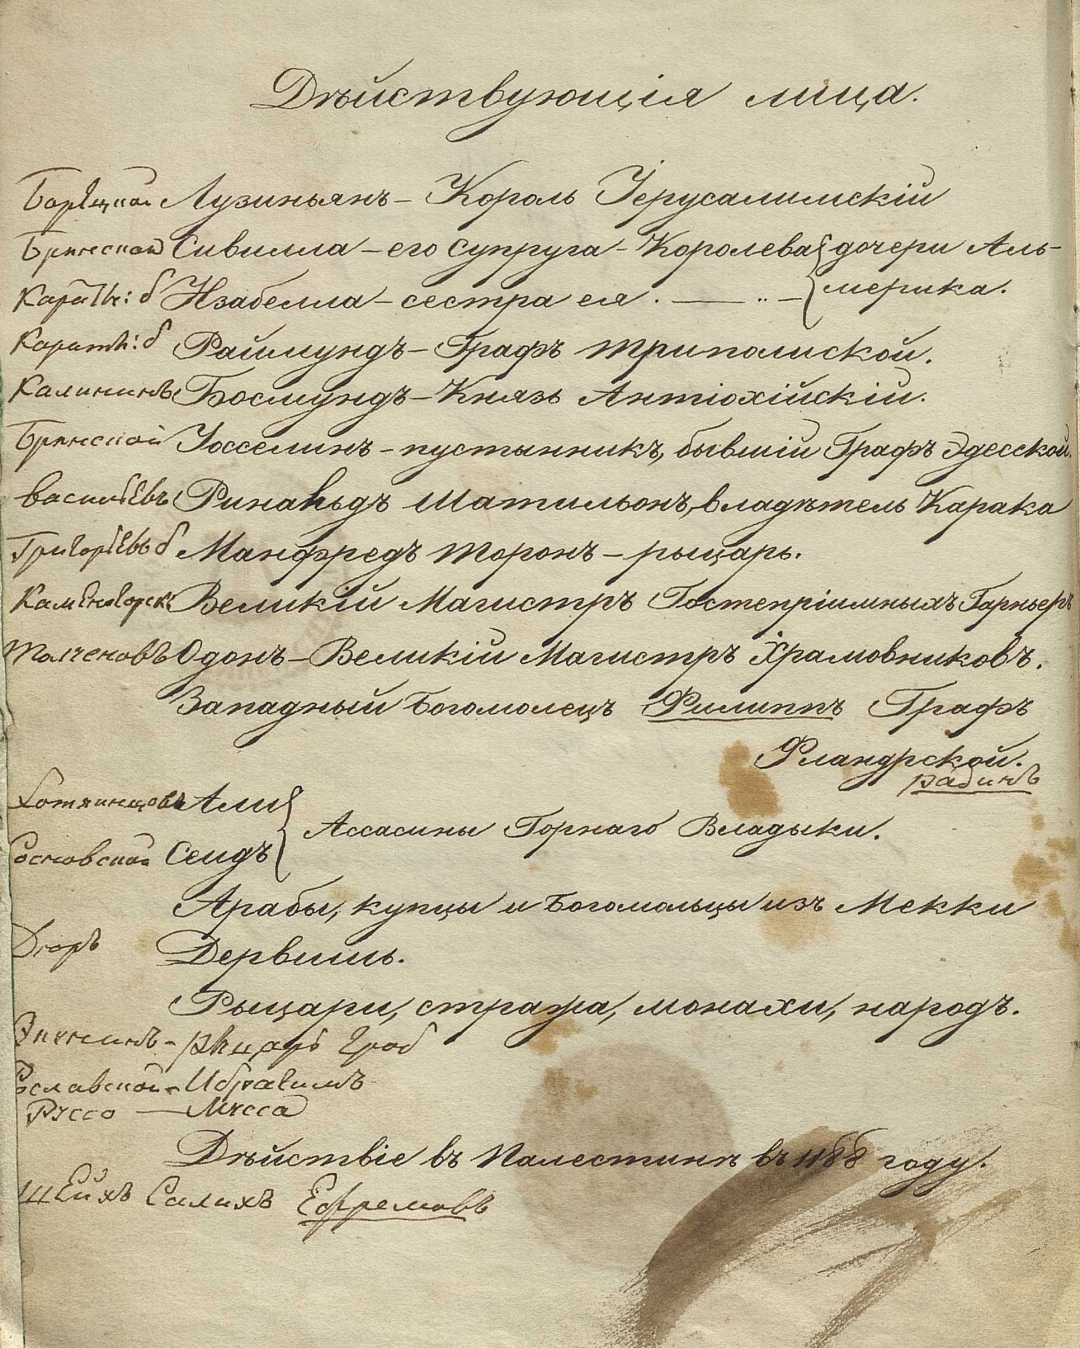 Дѣйствующія лица.
Борецкой Лузиньянъ – Король Іерусалимскій
Брянской Сивилла – его супруга – Королева } дочери Аль-
Карат: б Изабелла – сестра ея. — „ — } мерика.
Карат: б Раймундъ – Графъ Триполиской.
Калининъ Боемундъ – Князь Антіохійскій.
Брянской Іосселинъ – пустынникъ, бывшій Графъ Эдесской.
Васильевъ Ринальдъ Шатильонъ, владѣтель Карака
Григорьевъ б Манфредъ Торонъ – рыцарь.
Каменогорск: Великій Магистръ Гостепріимныхъ Гарньеръ
Толченовъ Одонъ – Великій Магистръ Храмовниковъ.
Западный Богомолецъ Филиппъ Графъ
Фландрской.
Радинъ
Хотяинцовъ Али }
Ассасины Горнаго Владыки.
Сосновской Сеидъ }
Арабы, купцы и Богомольцы изъ Мекки
Дюръ Дервишь.
Рыцари, стража, монахи, народъ.
рыцарь
Рославской – Ибрагимъ
Руссо — Мусса
Дѣйствіе въ Палестинѣ въ 1188 году.
Шейхъ Салихъ Ефремовъ